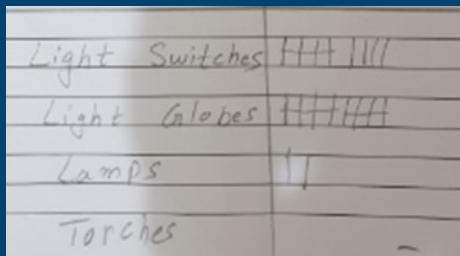 Light Switches
Light Globes
Lamps
Torches